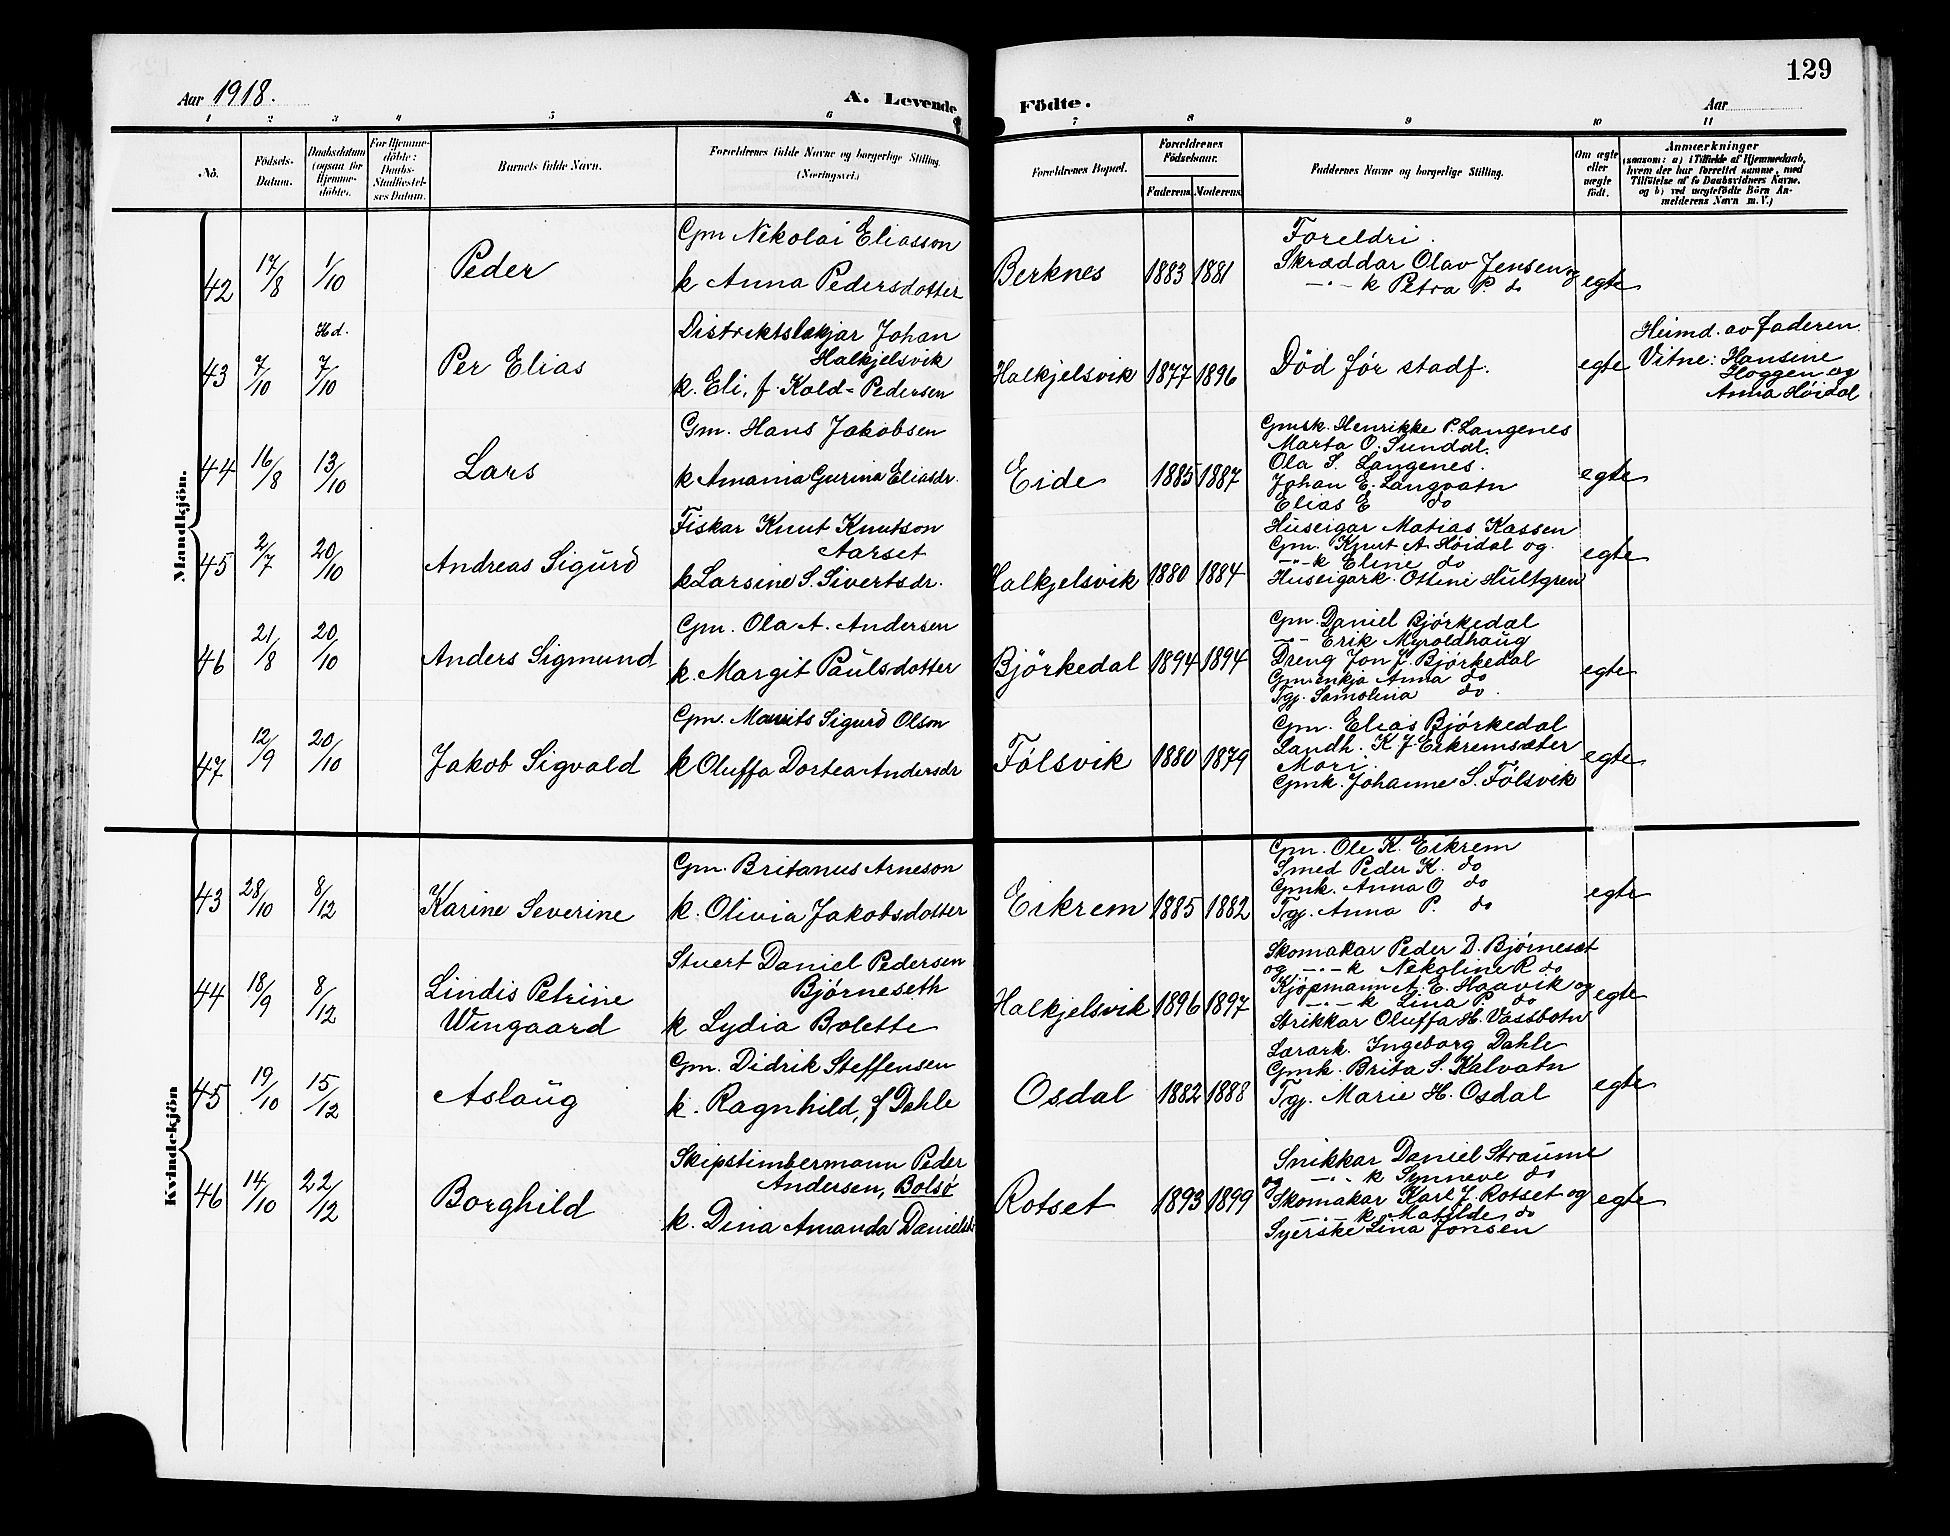 129
Aar 1918.
A. Levende Födte.
Aar
1 2 3 4 5 6 7 8 9 10 11
No.
Födsels-Datum.
Daabsdatum (ogsaa for Hjemme-döbte.
For Hjemme-döbte: Daabs-Stadfæstel-ses Datum.
Barnets fulde Navn.
Forældrenes fulde Navne og borgerlige Stilling. (Næringsvei.)
Forældrenes Bopæl.
Forældrenes Födselsaar.
Faderens. Moderens.
Faddernes Navne og borgerlige Stilling.
Om ægte eller uægte födt.
Anmærkninger
(saasom: a) i Tilfælde af Hjemmedaab, hvem der har forrettet samme, med Tilföielse af to Daabsvidners Navne, og b) ved uægtefödte Börn Anmelderens Navn m. V.)
Mandkjön.
42 17/8 1/10 Peder
Gm Nikolai Eliasson
k Anna Pedersdotter
Berknes 1883 1881
Foreldri.
Skræddar Olav Jensen og
—"— k Petra P. do
egte
43 7/10 Hd. 7/10 Per Elias
Distriktslækjar Johan
Halkjelsvik
k. Eli, f. Kold-Pedersen
Halkjelsvik 1877 1896
Död før stadf.
egte
Heimd. av faderen.
Vitne: Hansine
Hoggen og
Anna Høidal
44 16/8 13/10 Lars
Gm. Hans Jakobsen
k Amania Gurina Eliasdr.
Eide 1885 1887
Gmsk. Henrikke P. Langenes
Marta O. Sundal.
Ola S. Langenes.
Johan E. Langvatn
Elias E do
egte
45 2/7 20/10 Andreas Sigurd
Fiskar Knut Knutson
Aarset
k Larsine S. Sivertsdr.
Halkjelsvik 1880 1884
Huseigar Matias Kassen
Gm. Knut A. Høidal og
—"—k Eline do
Huseigark. Ottini Hultgren
egte
46 21/8 20/10 Anders Sigmund
Gm. Ola A. Andersen
k. Margit Paulsdotter
Bjørkedal 1894 1894
Gm. Daniel Bjørkedal
—"— Erik Myroldhaug
Dreng Jon J. Bjørkedal
Gm.enkja Anna do
Tgj. Samolina do.
egte
47 12/9 20/10 Jakob Sigvald
Gm. Maurits Sigurd Olson
k Oluffa Dortea Andersdr
Følsvik 1880 1879
Gm. Elias Bjørkedal
Landh. K. J. Eikremsæter
Mari.
Gmk. Johanne S. Følsvik
egte
Kvindekjön
43 28/10 8/12 Karine Severine
Gm. Britanus Arneson
k. Olivia Jakobsdotter
Eikrem 1885 1882
Gm. Ole K. Eikrem
Smed Peder K. do
Gmk. Anna O do
Tgj. Anna P. do
egte
44 18/9 8/12 Lindis Petrine
Wingaard
Stuert Daniel Pedersen
Bjørneseth
k Lydia Bolette
Halkjelsvik 1896 1897
Skomakar Peder D. Bjørneset
og —"—k Nekoline R do
Kjøpmann A. E. Haavik og
—"—k Lina P. do
Strikkar Oluffa H. Vassbotn
egte
45 19/10 15/12 Aslaug
Gm. Didrik Steffensen
k. Ragnhild, f Dahle
Osdal 1882 1888
Lærark. Ingeborg Dahle
Gmk. Brita S. Kalvatn
Tgj. Marie H. Osdal
egte
46 14/10 22/12 Borghild
Skipstimbermann Peder
Andersen, Bolsø
k. Dina Amanda Danielsd.
Rotset 1893 1899
Snikkar Daniel Straume
og —"— k Synneve do
Skomakar Karl J. Rotset og
—"—k Matilde do
Syerske Lina Jonsen
egte